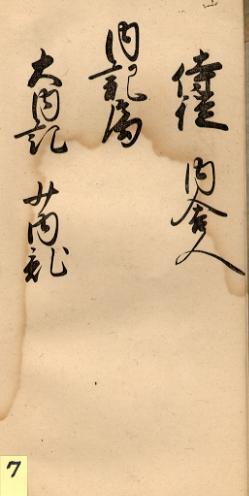 侍従 内舎人
内記局
大内記 少内記
7